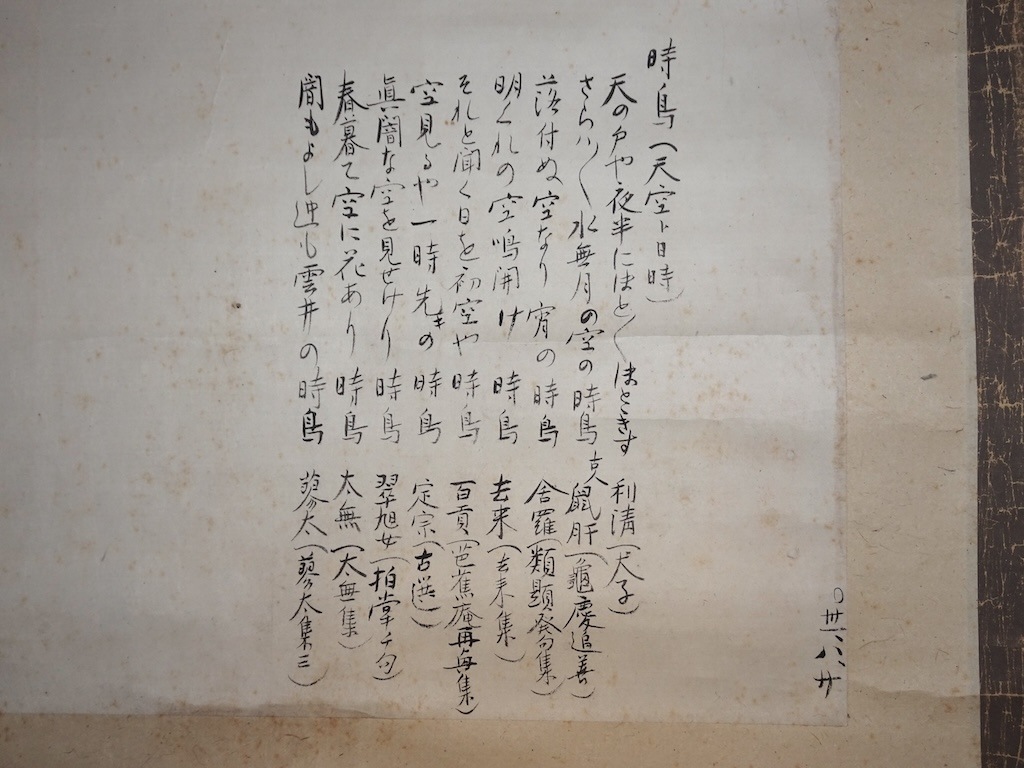 時鳥(天空ト日時)
天の戸や夜半にほと〱ほときす 利清(犬子)
さらハ〱水無月の空の時鳥 鼠肝(龜慶追善)
落付ぬ空なり宵の時鳥 舎羅(類題発句集)
明くれの空鳴開け時鳥 去来(去来集)
それと聞く日を初空や時鳥 百貢(芭蕉庵再興集)
空見るや一時先きの時鳥 定宗(古選)
眞闇な空を見せけり時鳥 翠旭女(拍掌千句)
春暮て空に花あり時鳥 大無(大無集)
闇もよし も雲井の時鳥 蓼太(蓼太集三)
○卅八、八、廿